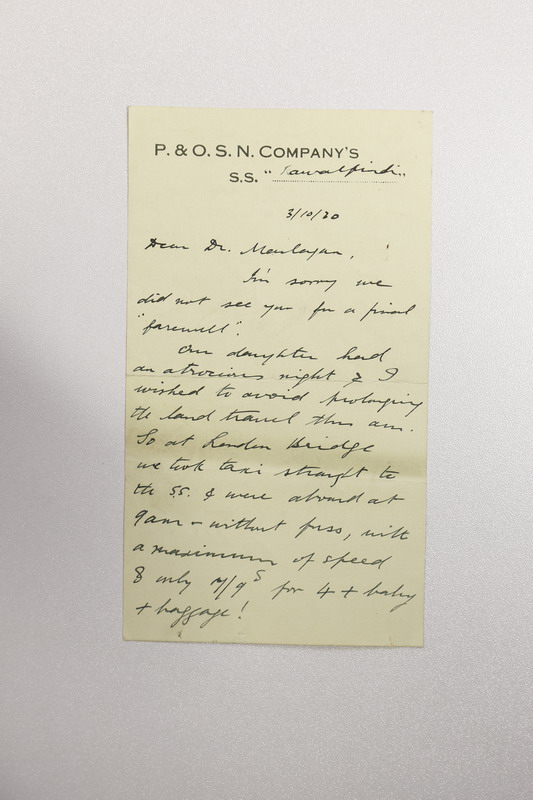 P. & O. S. N. COMPANY'S
S.S. "Rawalpindi"
3/10/30
Dear Dr.
I'm sorry we
did not see you for a final
"farewell".
Our daughter had
an atrocious night & I
wished to avoid prolonging
the land travel this am.
So at London Bridge
we took taxi straight to
the S.S. & were aboard at
9am – without fuss, with
a maximum of speed
& only 7/9 for 4 + baby
+ baggage!